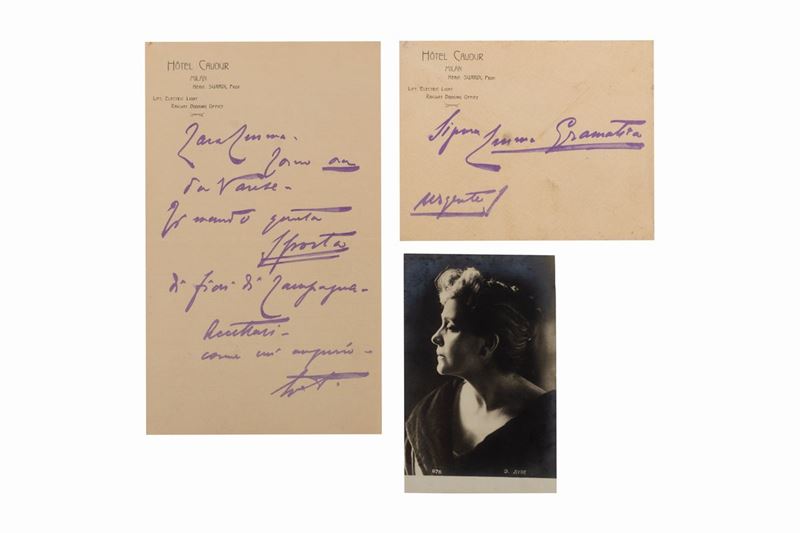 HÔTEL CAVOUR
MILAN
HENR. SUARDI, PROP.
LIFT, ELECTRIC LIGHT
RAILWAY BOOKING OFFICE
Cara Emma -
Torno ora
da Varese -
Ti mando questa
Sporta
di fiori di Campagna -
Accettali -
come un augurio -
HÔTEL CAVOUR
MILAN
HENR. SUARDI, PROP.
LIFT, ELECTRIC LIGHT
RAILWAY BOOKING OFFICE
Signora Emma Gramatica
urgente
976